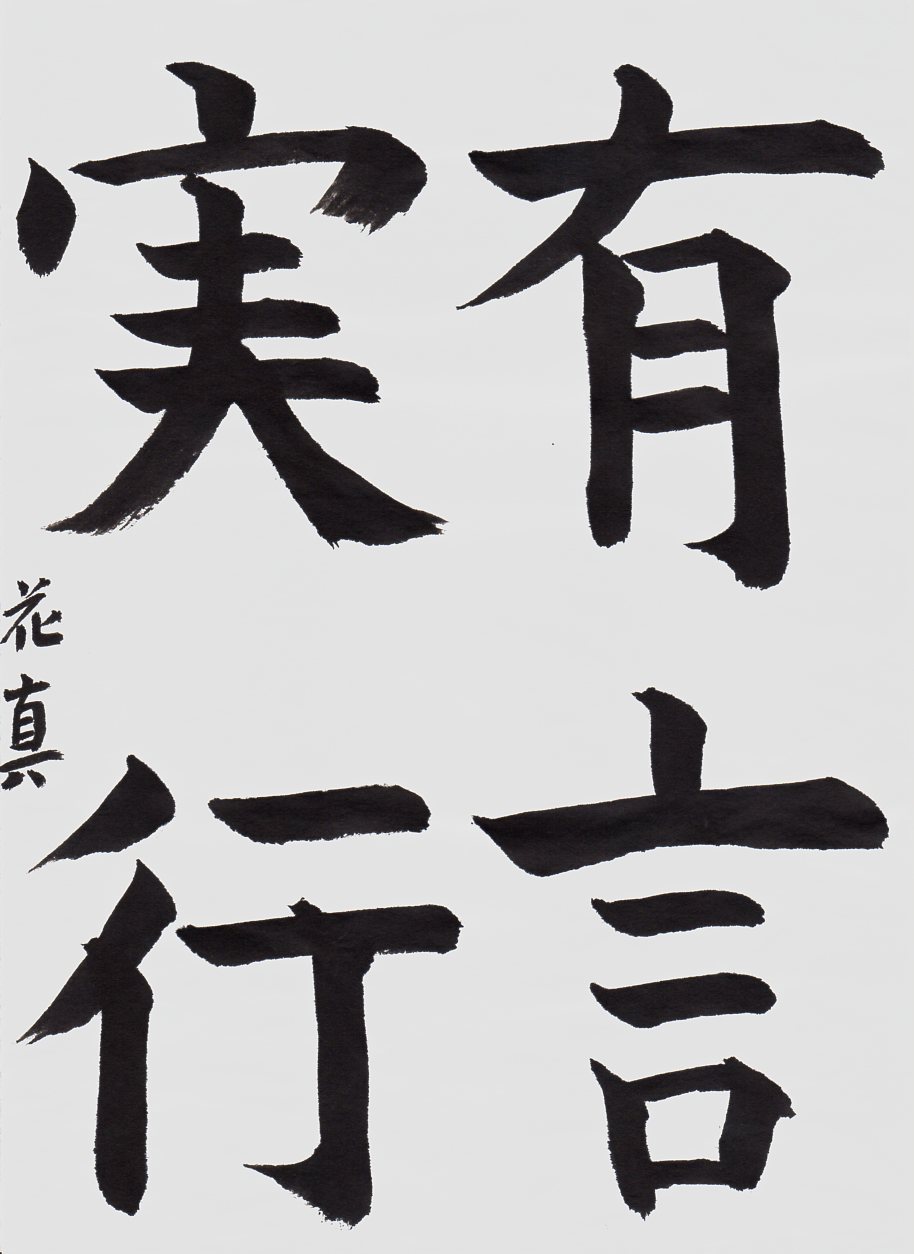 有言
実行
花真